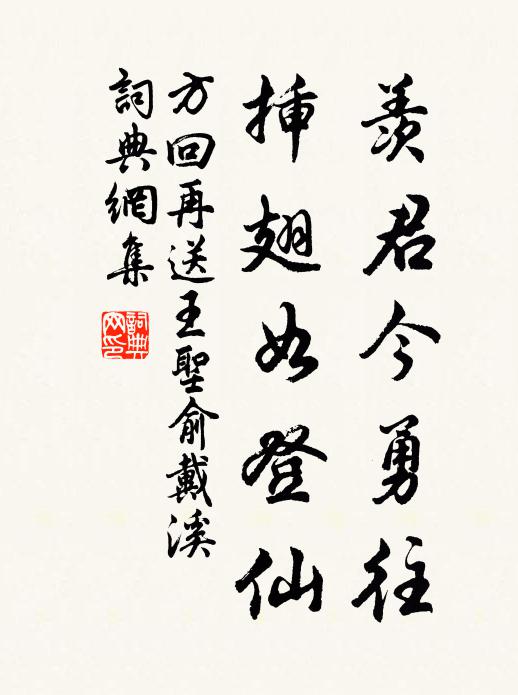 羨君今勇往
揷翅如登仙
方回再送王聖俞戴溪
詞典網集
詞典网印